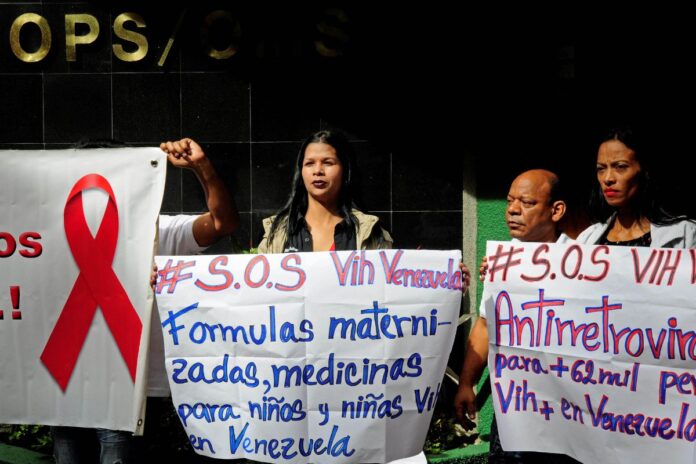 OPS/OMS
os
.!
#S.O.S Vih Venezuela
Formulas materni-
zadas, medicinas
para niños y niñas Vi
en Venezuela
#S.O.S VIH V
Antirretrovira
para +62mil per
Vih+ en Venezuela